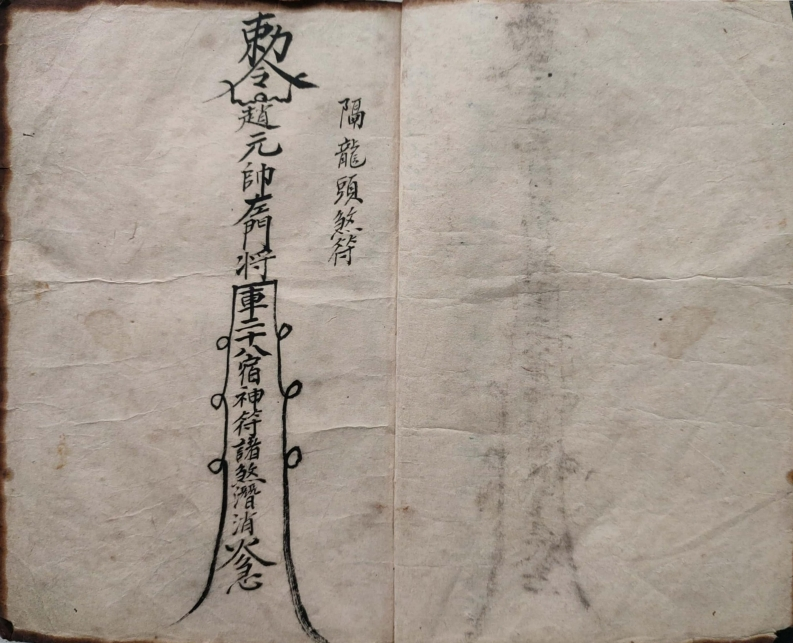 隔龍頭煞符
敕令趙元帥左門將軍二十八宿神符諸煞潛消火急